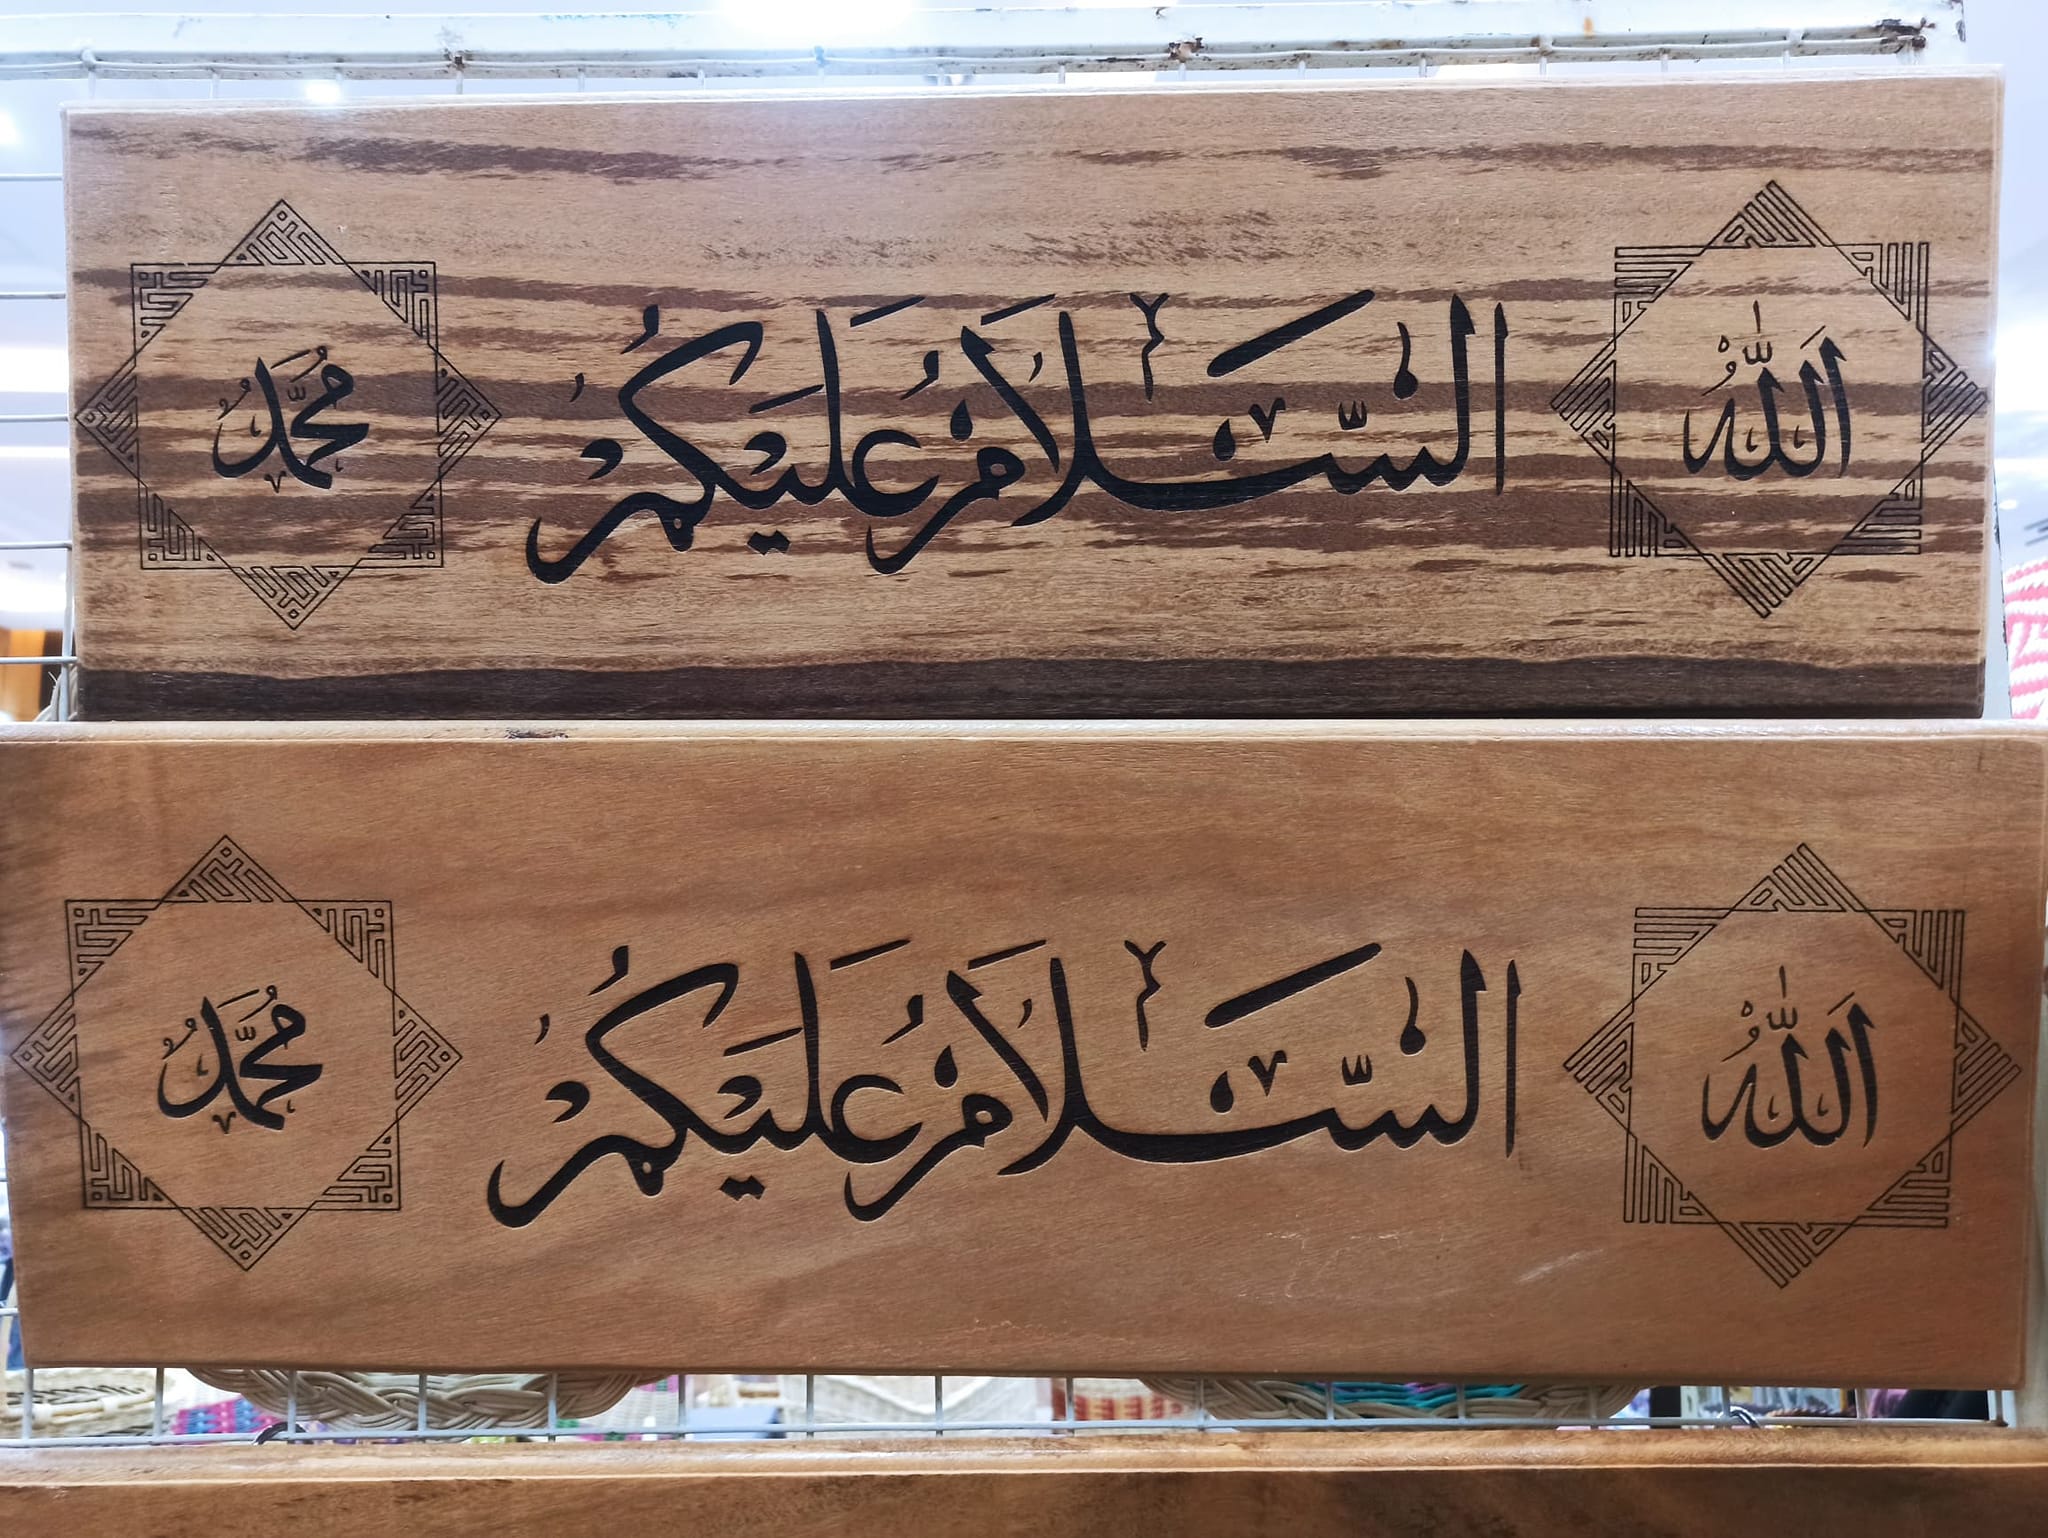 الله السَّلَامُ عَلَيْكُمْ مُحَمَّدٌ
الله السَّلَامُ عَلَيْكُمْ مُحَمَّدٌ